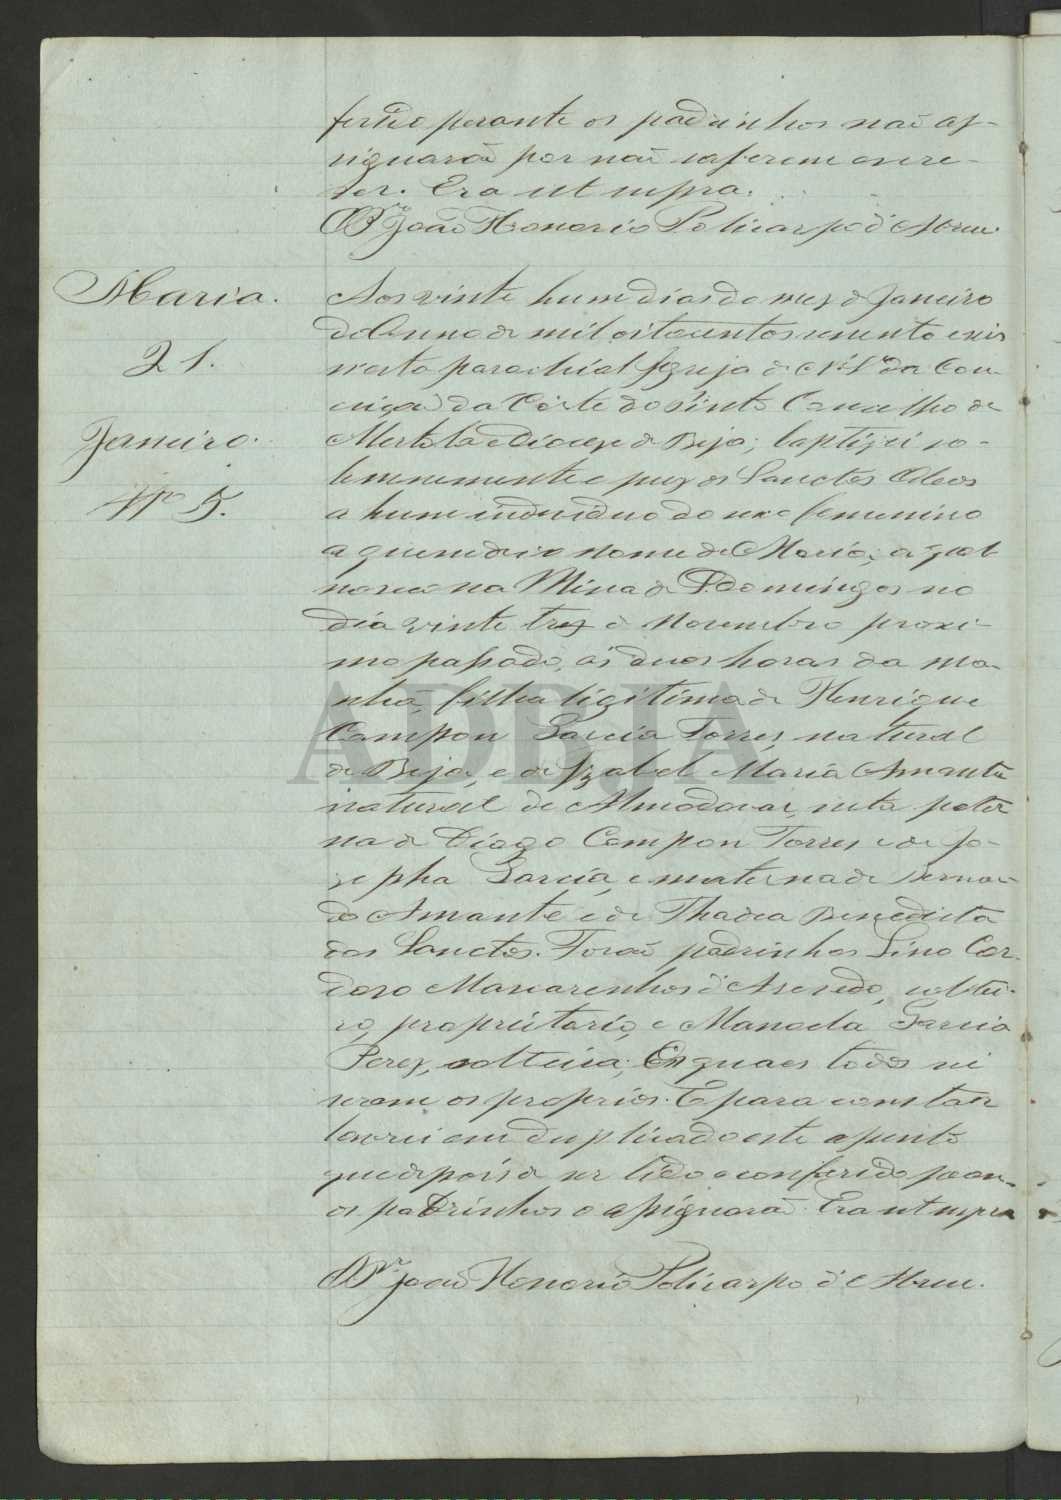 ferido perante os padrinhos naõ as-
signaraõ por naõ saberem escre-
ver. Era ut supra.
O P.or João Honorio Policarpo d'Abreu.
Maria.
21.
Janeiro.
Nº 5.
Aos vinte hum dias do mez de Janeiro
do Anno de mil oitocentos secenta e seis
n'esta parochial Igreja de N. S. da Con-
ceiçaõ da Córte do Pinto Concelho de
Mertola e Diocese de Beja; baptizei so-
lemnemente e puz os Sanctos Oleos
a hum individuo do sexo femenino
a quem dei o nome de Maria, a qual
nasceo na Mina de S. Domingos no
dia vinte trez de Novembro proxi-
mo passado, ás duas horas da ma-
nhã, filha ligitima de Henrique
Campon Garcia Torres, natural
de Beja, e de Izabel Maria Amante
natural de Almodovar, neta pater
na de Diogo Campon Torres e de Jo-
zepha Garcia, e materna de Bernar-
do Amante e de Thadea Benedicta
dos Sanctos. Foraõ padrinhos Lino Car-
dozo Mascarenhas d'Asevedo, soltei-
ro, proprietario, e Manoela Garcia
Perez, solteira; Os quaes todos sei
serem os proprios. E para constar
lavrei em duplicado este assento
que depois de ser lido e conferido peran-
os padrinhos o assignaraõ. Era ut supra
O P.or João Honorio Policarpo d'Abreu.
ADBJA